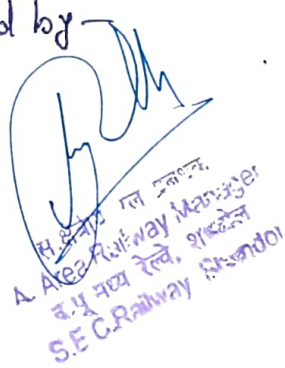 d by -
स. क्षेत्रीय रेल प्रबन्धक
A. Area Railway Manager
द. पू. मध्य रेल्वे, शहडोल
S.E.C. Railway